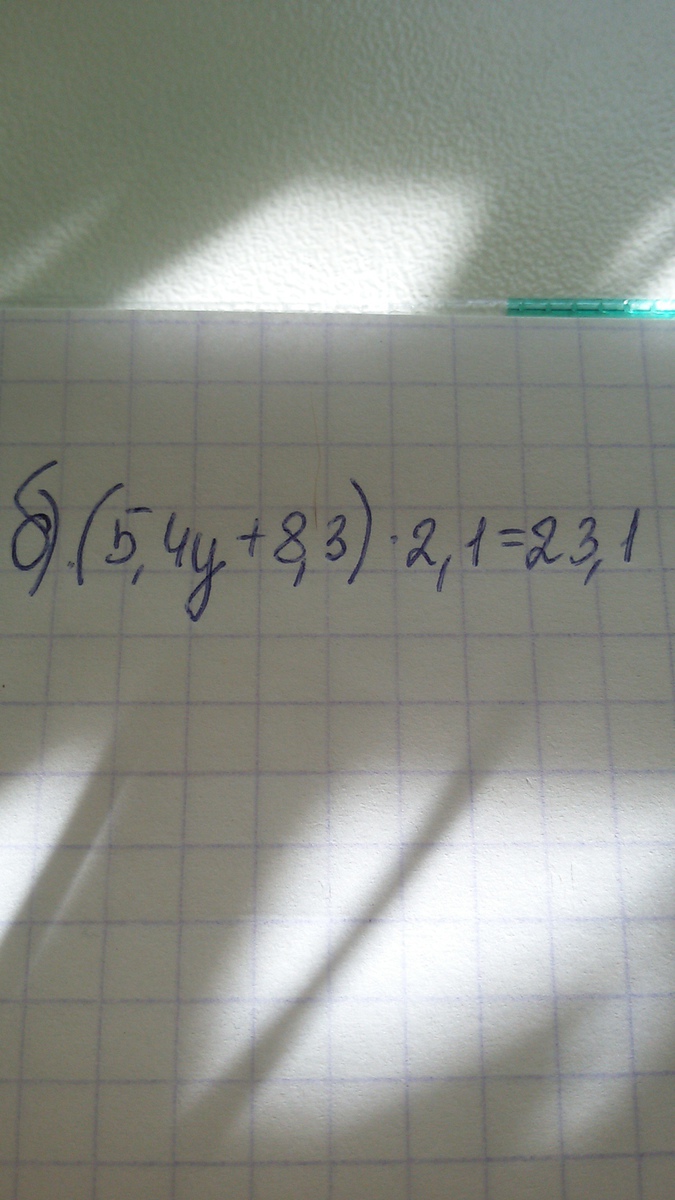 б). (5,4y + 8,3) · 2,1 = 23,1